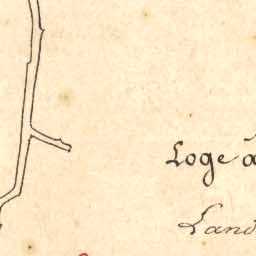 Loge a
Land